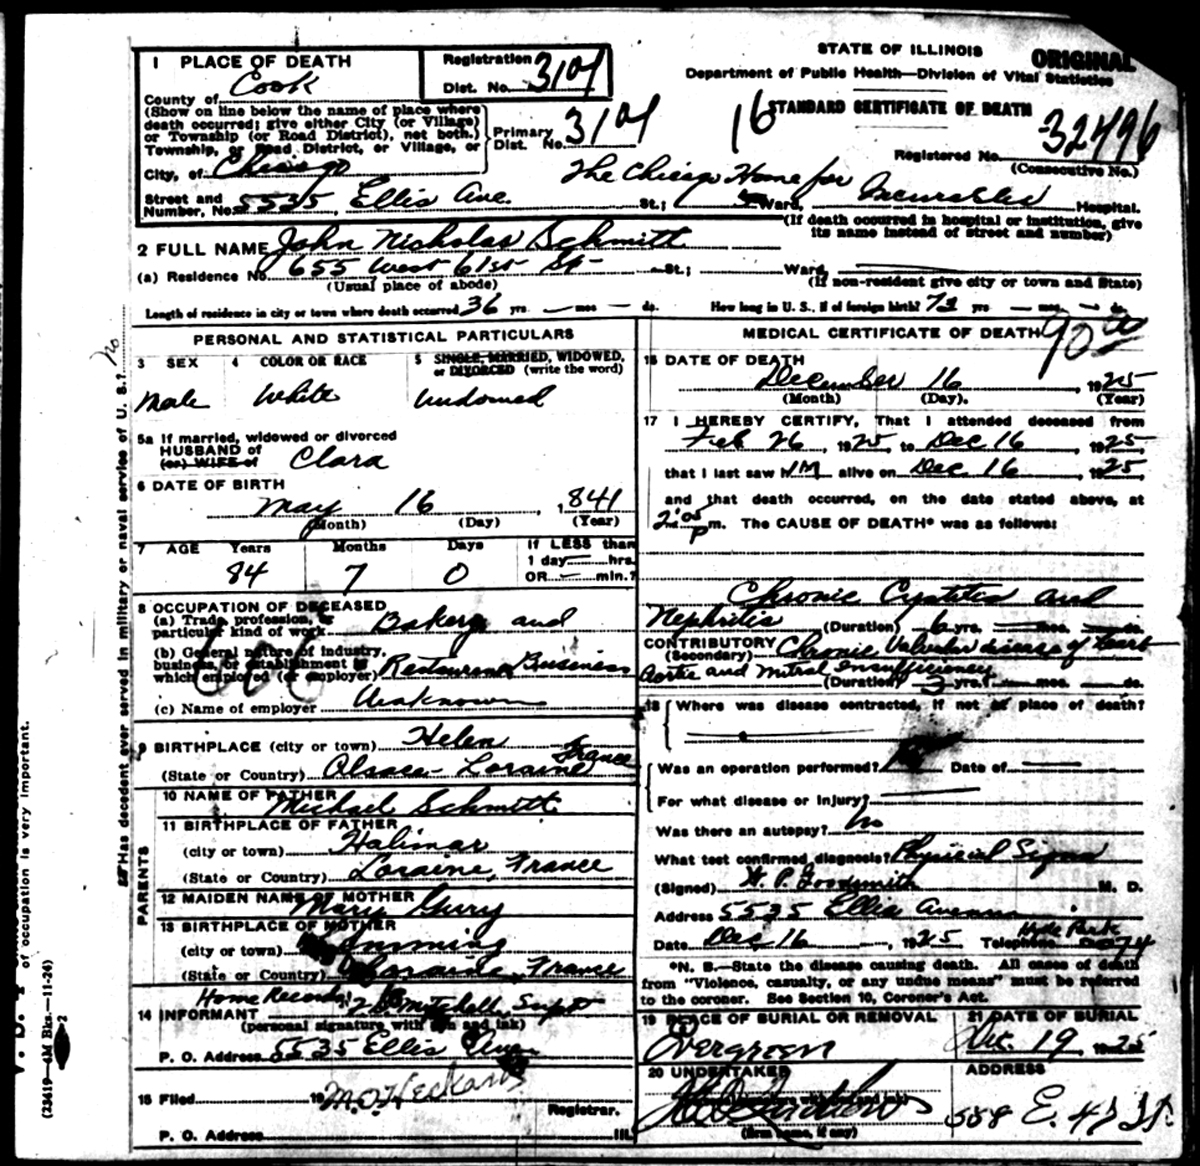 STATE OF ILLINOIS
ORIGINAL
Department of Public Health—Division of Vital Statistics
16 STANDARD CERTIFICATE OF DEATH
Registered No. 32496
(Consecutive No.)
1 PLACE OF DEATH
County of Cook
Registration Dist. No. 3104
(Show on line below the name of place where
death occurred; give either City (or Village)
or Township (or Road District), not both.)
Primary Dist. No. 3104
Township, or Road District, or Village, or
City, of Chicago
The Chicago Home for
Street and Number, No. 5535 Ellis Ave. St.; Ward, Incurables Hospital.
(If death occurred in hospital or institution, give
its name instead of street and number)
2 FULL NAME John Nicholas Schmitt
(a) Residence No. 655 West 61st St. St.; Ward,
(Usual place of abode) (If non-resident give city or town and State)
Length of residence in city or town where death occurred 36 yrs. — mos — ds. How long in U. S., if of foreign birth? 73 yrs — mos — ds.
PERSONAL AND STATISTICAL PARTICULARS
3 SEX 4 COLOR OR RACE 5 SINGLE, MARRIED, WIDOWED,
or DIVORCED (write the word)
Male White Widowed
5a If married, widowed or divorced
HUSBAND of
(or) WIFE of Clara
6 DATE OF BIRTH
May 16, 1841
(Month) (Day) (Year)
7 AGE Years Months Days If LESS than
1 day — hrs.
84 7 0 OR — min.?
8 OCCUPATION OF DECEASED
(a) Trade, profession, or
particular kind of work Bakery and
(b) General nature of industry,
business, or establishment in
which employed (or employer) Restaurant Business
(c) Name of employer Unknown
9 BIRTHPLACE (city or town) Helen
(State or Country) Alsace Loraine France
PARENTS
10 NAME OF FATHER
Michael Schmitt
11 BIRTHPLACE OF FATHER
(city or town) Halimar
(State or Country) Loraine, France
12 MAIDEN NAME OF MOTHER
Mary
13 BIRTHPLACE OF MOTHER
(city or town)
(State or Country) Loraine, France
Home Records
14 INFORMANT Mitchell, Supt
(personal signature with pen and ink)
P. O. Address 5535 Ellis Aven
15 Filed 19
Registrar.
P. O. Address Ill.
MEDICAL CERTIFICATE OF DEATH
90.00
16 DATE OF DEATH
December 16, 1925
(Month) (Day). (Year)
17 I HEREBY CERTIFY, That I attended deceased from
Feb 26, 1925, to Dec 16, 1925
that I last saw him alive on Dec 16, 1925,
and that death occurred, on the date stated above, at
2:05 Pm. The CAUSE OF DEATH* was as follows:
Chronic Cystitis and
Nephritis (Duration) 6 yrs. — mos. — ds.
CONTRIBUTORY Chronic Valvular disease of heart
(Secondary)
Aortic and Mitral Insufficiency
(Duration) 3 yrs. — mos. — ds.
18 Where was disease contracted, if not at place of death?
Was an operation performed? Date of —
For what disease or injury? —
Was there an autopsy? No
What test confirmed diagnosis? Physical Signs
(Signed) H. P. Goodsmith M. D.
Address 5535 Ellis Avenue
Date Dec 16, 1925 Telephone Hyde Park
*N. B.—State the disease causing death. All cases of death
from "Violence, casualty, or any undue means" must be referred
to the coroner. See Section 10, Coroner's Act.
19 PLACE OF BURIAL OR REMOVAL 21 DATE OF BURIAL
Evergreen Dec. 19, 1925
20 UNDERTAKER ADDRESS
558 E. 47 St.
(firm name, if any)
22 Has decedent ever served in military or naval service of U. S.? No
of occupation is very important.
(23419—4M Bks.—11-24)
2